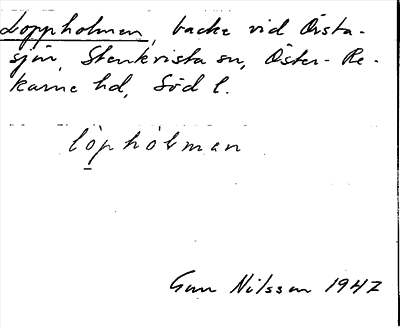 Loppholmen, backe vid Örsta-
sjön, Stenkvista sn, Öster-Re-
karne hd, Söd l.
löphòlman
Gun Nilsson 1947